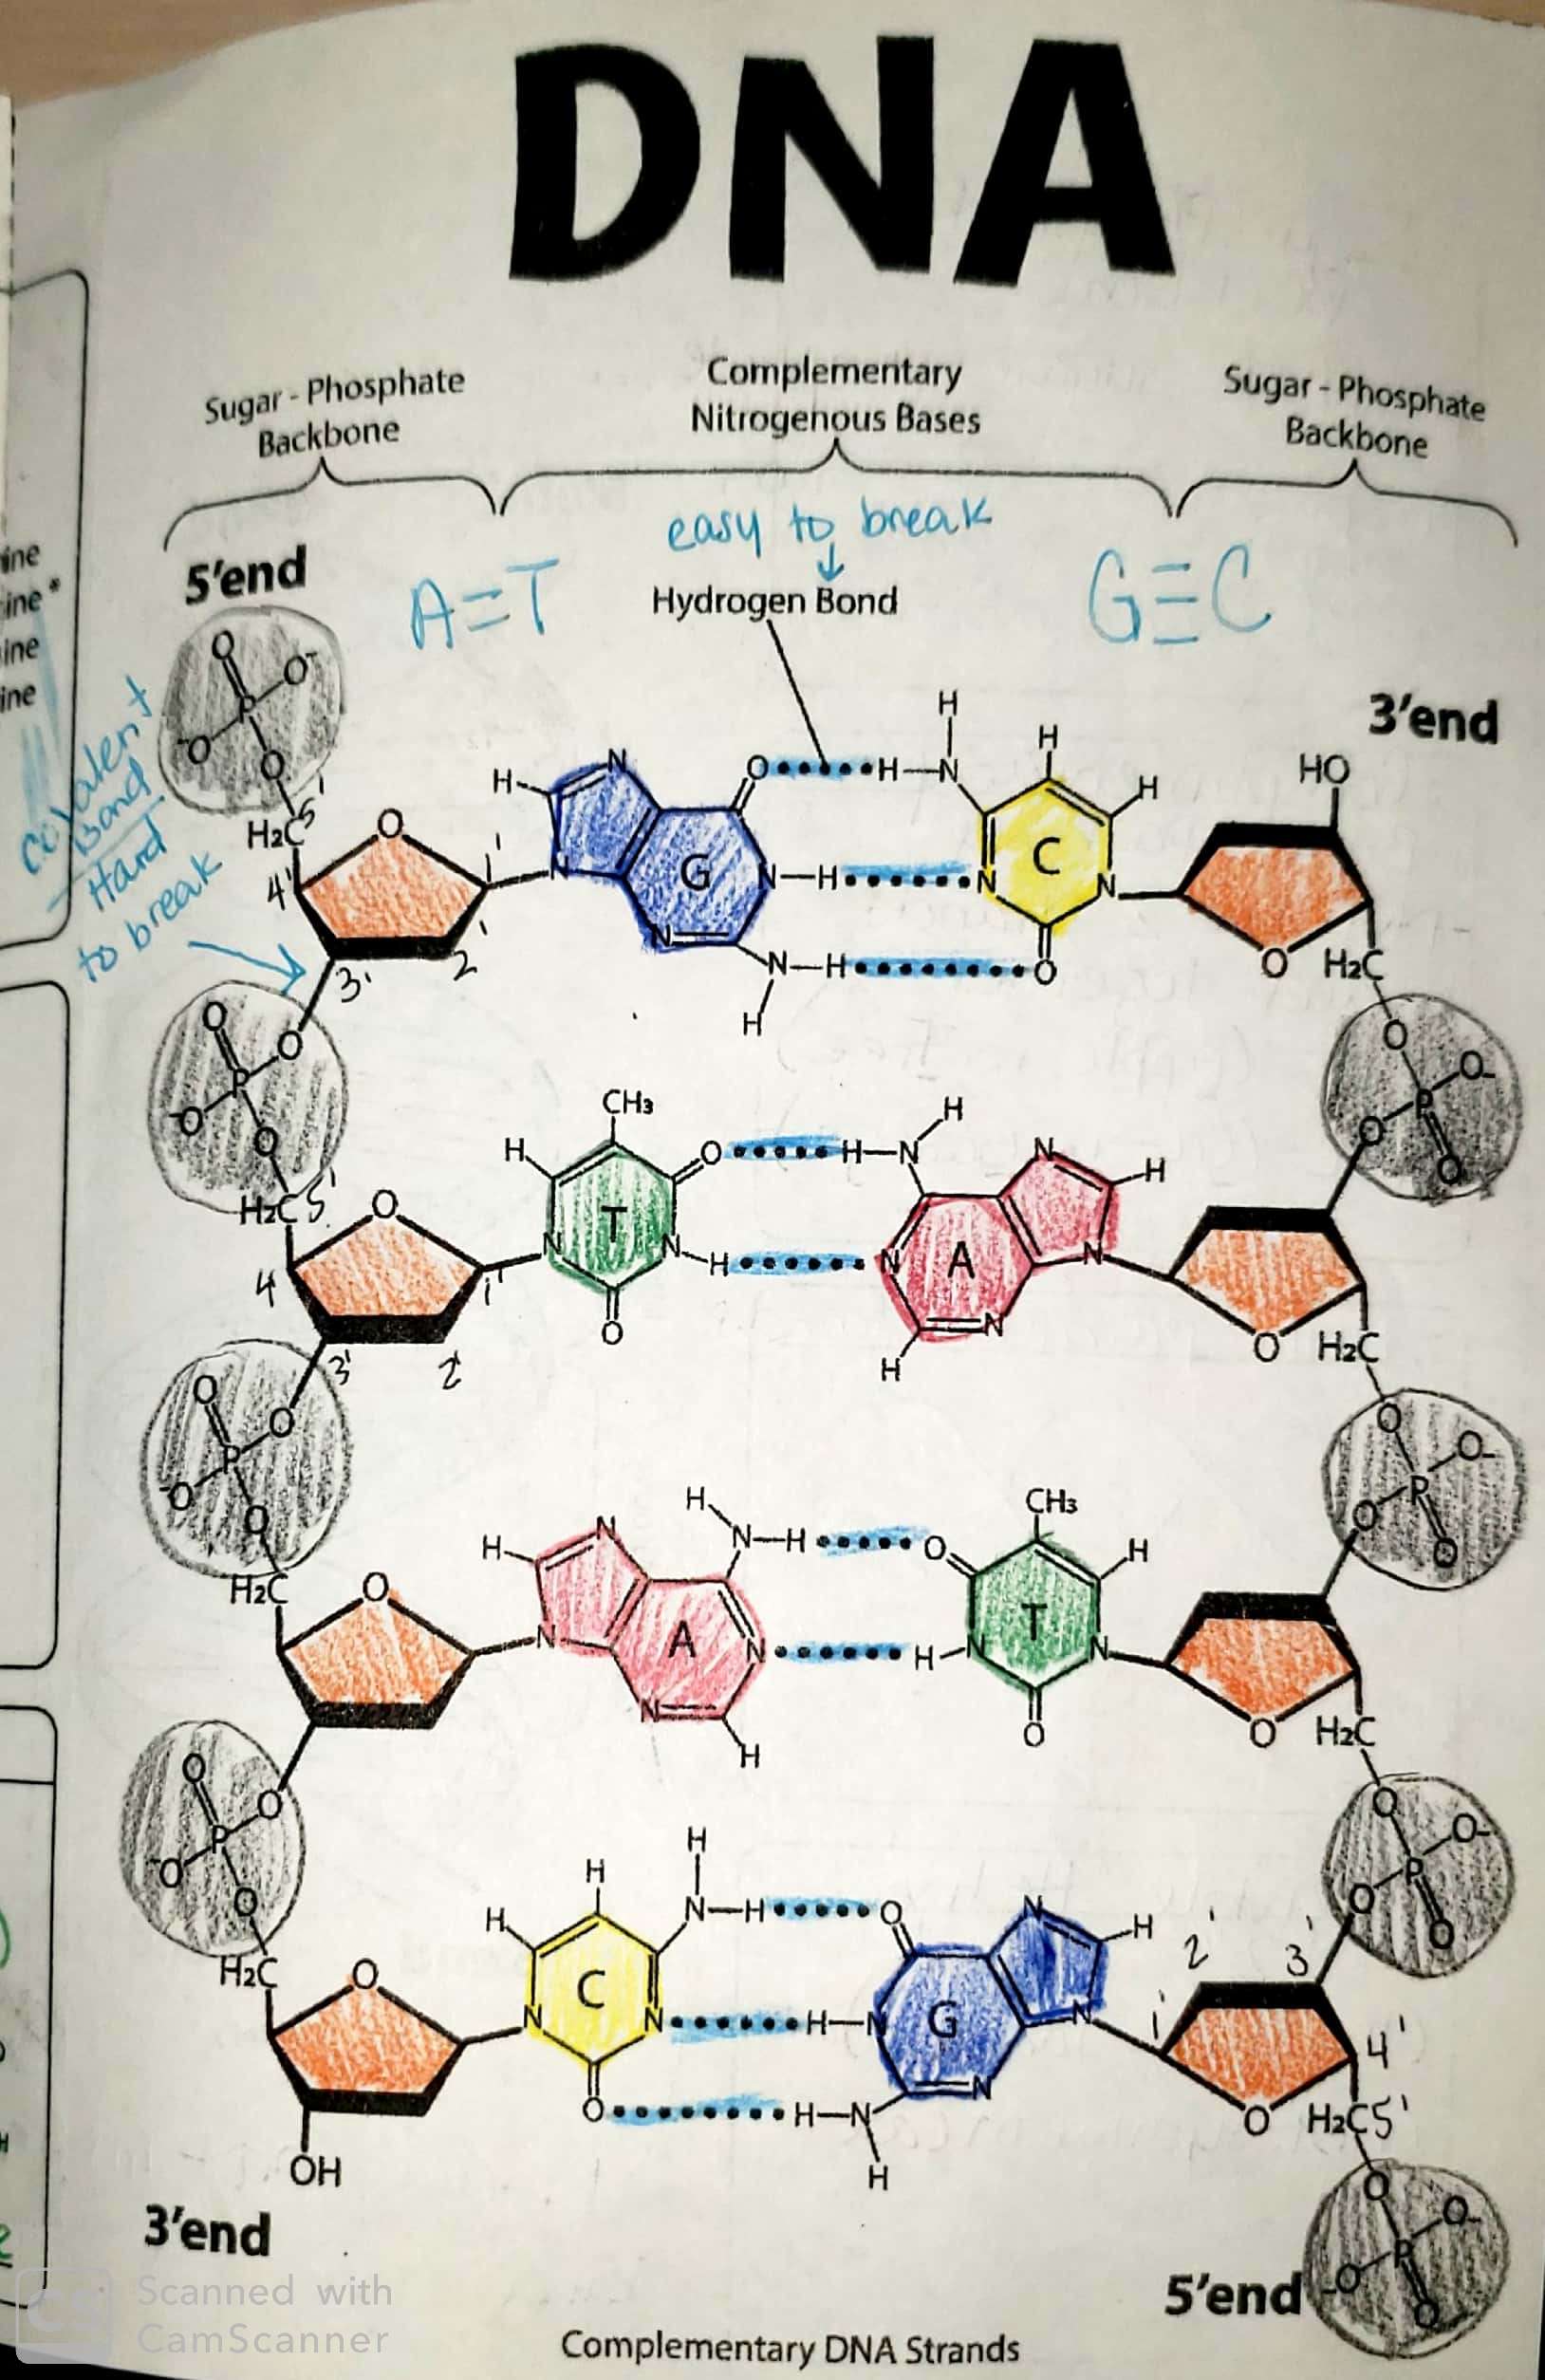 DNA
Sugar - Phosphate
Backbone
Complementary
Nitrogenous Bases
Sugar - Phosphate
Backbone
easy to break
5'end
A=T
Hydrogen Bond
G≡C
3'end
Covalent
Bond
Hard
to break
ine
ine *
ine
ine
O
O-
P
-O
O
H₂C 5'
O
4'
1'
3'
2'
H
N
N
G
N
N
O
H
N
H
N
H
H
H
H
N
H
H
C
N
N
O
HO
O
H₂C
O
P
-O
O
O
H₂C 5'
O
4
1'
3'
2'
CH₃
H
O
T
N
N
H
O
H
H
N
N
N
A
N
N
H
H
O
H₂C
O
O-
P
O
O
O
P
-O
O
O
H₂C
O
H
N
N
A
N
N
H
H
N
H
CH₃
O
H
T
H
N
N
O
O
H₂C
O
O-
P
O
O
O
P
-O
O
O
H₂C
O
OH
H
H
H
N
H
C
N
N
O
O
N
H
H
N
G
N
N
H
N
H
2'
3'
1'
4'
O
H₂C 5'
O
O-
P
O
O
O
O-
P
-O
O
3'end
5'end
Complementary DNA Strands
Scanned with
CamScanner